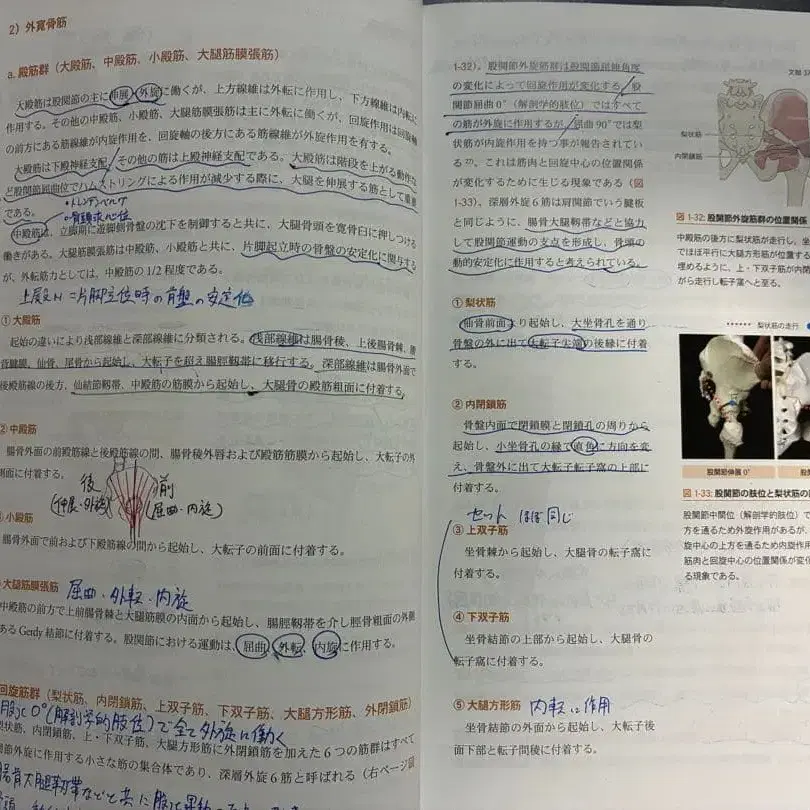 2）外寛骨筋
a. 殿筋群（大殿筋、中殿筋、小殿筋、大腿筋膜張筋）
大殿筋は股関節の主に伸展・外旋に働くが、上方線維は外転に作用し、下方線維は内転に
作用する。その他の中殿筋、小殿筋、大腿筋膜張筋は主に外転に働くが、回旋作用は回旋軸
の前方にある筋線維が内旋作用を、回旋軸の後方にある筋線維が外旋作用を有する。
大殿筋は下殿神経支配、その他の筋は上殿神経支配である。大殿筋は階段を上がる動作な
ど股関節屈曲位でハムストリングによる作用が減少する際に、大腿を伸展する筋として重要
である。
・トレンデレンブルグ
・骨頭求心位
中殿筋は、立脚期に遊脚側骨盤の沈下を制御すると共に、大腿骨頭を寛骨臼に押しつける
働きがある。大腿筋膜張筋は中殿筋、小殿筋と共に、片脚起立時の骨盤の安定化に関与する
が、外転筋力としては、中殿筋の 1/2 程度である。
上殿N＝片脚立位時の骨盤の安定化
① 大殿筋
起始の違いにより浅部線維と深部線維に分類される。浅部線維は腸骨稜、上後腸骨棘、
背腱膜、仙骨、尾骨から起始し、大転子を超え腸脛靭帯に移行する。深部線維は腸骨外面で
後殿筋線の後方、仙結節靭帯、中殿筋の筋膜から起始し、大腿骨の殿筋粗面に付着する。
② 中殿筋
腸骨外面の前殿筋線と後殿筋線の間、腸骨稜外唇および殿筋筋膜から起始し、大転子の外
側面に付着する。
後 前
（伸展・外旋） （屈曲・内旋）
小殿筋
腸骨外面で前および下殿筋線の間から起始し、大転子の前面に付着する。
大腿筋膜張筋 屈曲・外転・内旋
中殿筋の前方で上前腸骨棘と大腿筋膜の内面から起始し、腸脛靭帯を介し脛骨粗面の外側
ある Gerdy 結節に付着する。股関節における運動は、屈曲、外転、内旋に作用する。
回旋筋群（梨状筋、内閉鎖筋、上双子筋、下双子筋、大腿方形筋、外閉鎖筋）
0°(解剖学的肢位)で全て外旋に働く
状筋、内閉鎖筋、上・下双子筋、大腿方形筋に外閉鎖筋を加えた 6 つの筋群はすべて
節外旋に作用する小さな筋の集合体であり、深層外旋 6 筋と呼ばれる（右ページ図
腸骨大腿靭帯などと共に
1-32）。股関節外旋筋群は股関節屈曲角度
の変化によって回旋作用が変化する。股
関節屈曲 0°（解剖学的肢位）ではすべて
の筋が外旋に作用するが、屈曲 90°では梨
状筋が内旋作用を持つ事が報告されてい
る。これは筋肉と回旋中心の位置関係
が変化するために生じる現象である（図
1-33）。深層外旋 6 筋は肩関節でいう腱板
と同じように、腸骨大腿靭帯などと協力
して股関節運動の支点を形成し、骨頭の
動的安定化に作用すると考えられている。
① 梨状筋
仙骨前面より起始し、大坐骨孔を通り
骨盤の外に出て大転子尖端の後縁に付着
する。
② 内閉鎖筋
骨盤内面で閉鎖膜と閉鎖孔の周りから
起始し、小坐骨孔の縁で直角に方向を変
え、骨盤外に出て大転子転子窩の上部に
付着する。
セット ほぼ同じ
③ 上双子筋
坐骨棘から起始し、大腿骨の転子窩に
付着する。
④ 下双子筋
坐骨結節の上部から起始し、大腿骨の
転子窩に付着する。
⑤ 大腿方形筋 内転に作用
坐骨結節の外面から起始し、大転子後
面下部と転子間稜に付着する。
梨状筋
内閉鎖筋
図 1-32：股関節外旋筋群の位置関係
中殿筋の後方に梨状筋が走行し、坐
でほぼ平行に大腿方形筋が位置する
埋めるように、上・下双子筋が内閉
がら走行し転子窩へと至る。
梨状筋の走行
股関節伸展 0°
図 1-33：股関節の肢位と梨状筋の
股関節中間位（解剖学的肢位）で
方を通るため外旋作用があるが、
旋中心の上方を通るため内旋作用
筋肉と回旋中心の位置関係が変化
る現象である。